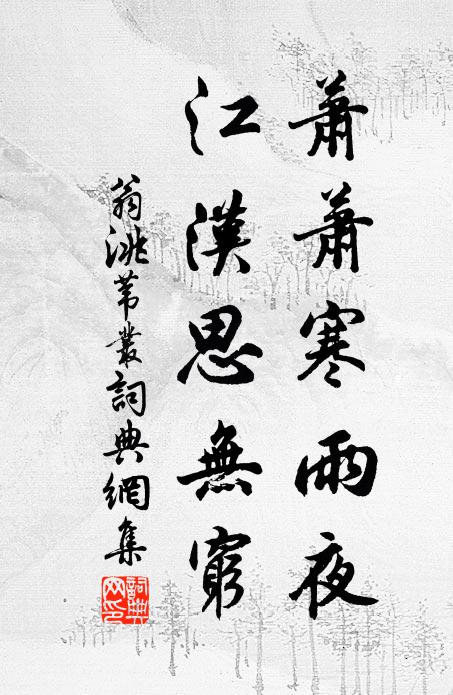 蕭蕭寒雨夜
江漢思無窮
翁洮葦叢詞典網集
詞典網印